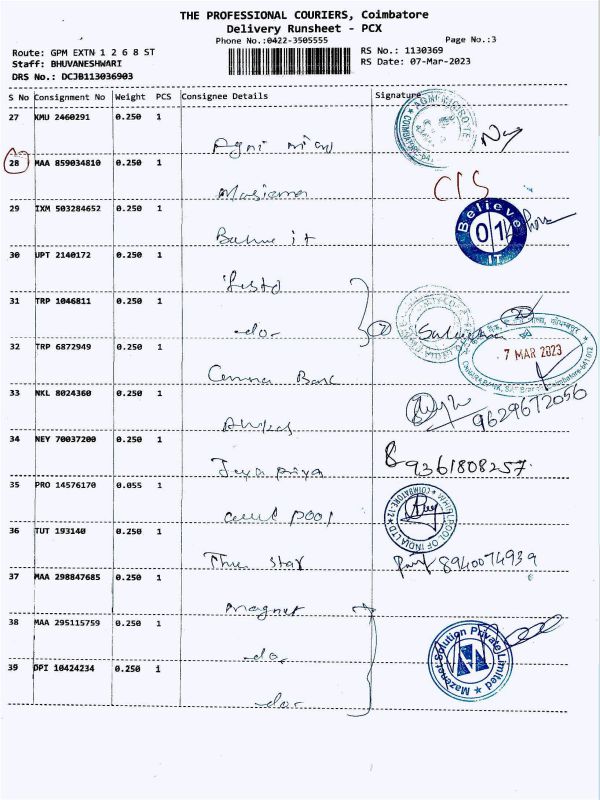 THE PROFESSIONAL COURIERS, Coimbatore
Delivery Runsheet - PCX
Phone No.:0422-3505555 Page No.:3
Route: GPM EXTN 1 2 6 8 ST RS No.: 1130369
Staff: BHUVANESHWARI RS Date: 07-Mar-2023
DRS No.: DCJB113036903
S No Consignment No Weight PCS Consignee Details Signature
27 KMU 2460291 0.250 1
Agni
28 MAA 859034810 0.250 1
CIS
29 IXM 503284652 0.250 1
Believe
01
IT
30 UPT 2140172 0.250 1
31 TRP 1046811 0.250 1
-do-
7 MAR 2023
32 TRP 6872949 0.250 1
Bank
33 NKL 8024360 0.250 1
9629672056
34 NEY 70037200 0.250 1
Jeya priya
9361808257
35 PRO 14576170 0.055 1
WHIRLPOOL OF INDIA LTD
COIMBATORE-12
36 TUT 193140 0.250 1
star
8940074939
37 MAA 298847685 0.250 1
Magnet
38 MAA 295115759 0.250 1
-do-
Mazenet Solution Private Limited
39 OPI 10424234 0.250 1
-do-